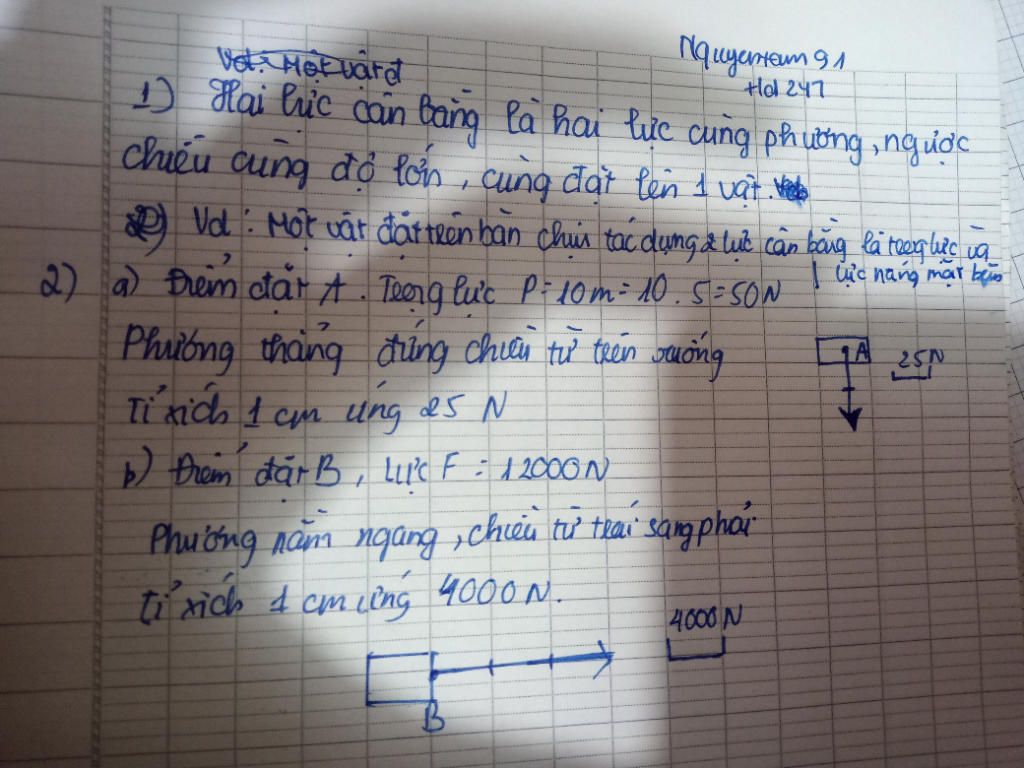 Vd: Một vật đ
Nguyenam 91
Hd 247
1) Hai lực cân bằng là hai lực cùng phương, ngược
chiều cùng độ lớn, cùng đặt lên 1 vật.
Vd: Một vật đặt trên bàn chịu tác dụng 2 lực cân bằng là trọng lực và
lực nâng mặt bàn
2) a) Điểm đặt A. Trọng lực P = 10m = 10 . 5 = 50N
Phương thẳng đứng chiều từ trên xuống
Tỉ xích 1 cm ứng 25 N
A
25N
b) Điểm đặt B, lực F = 12000N
Phương nằm ngang, chiều từ trái sang phải
Tỉ xích 1 cm ứng 4000N.
4000N
B